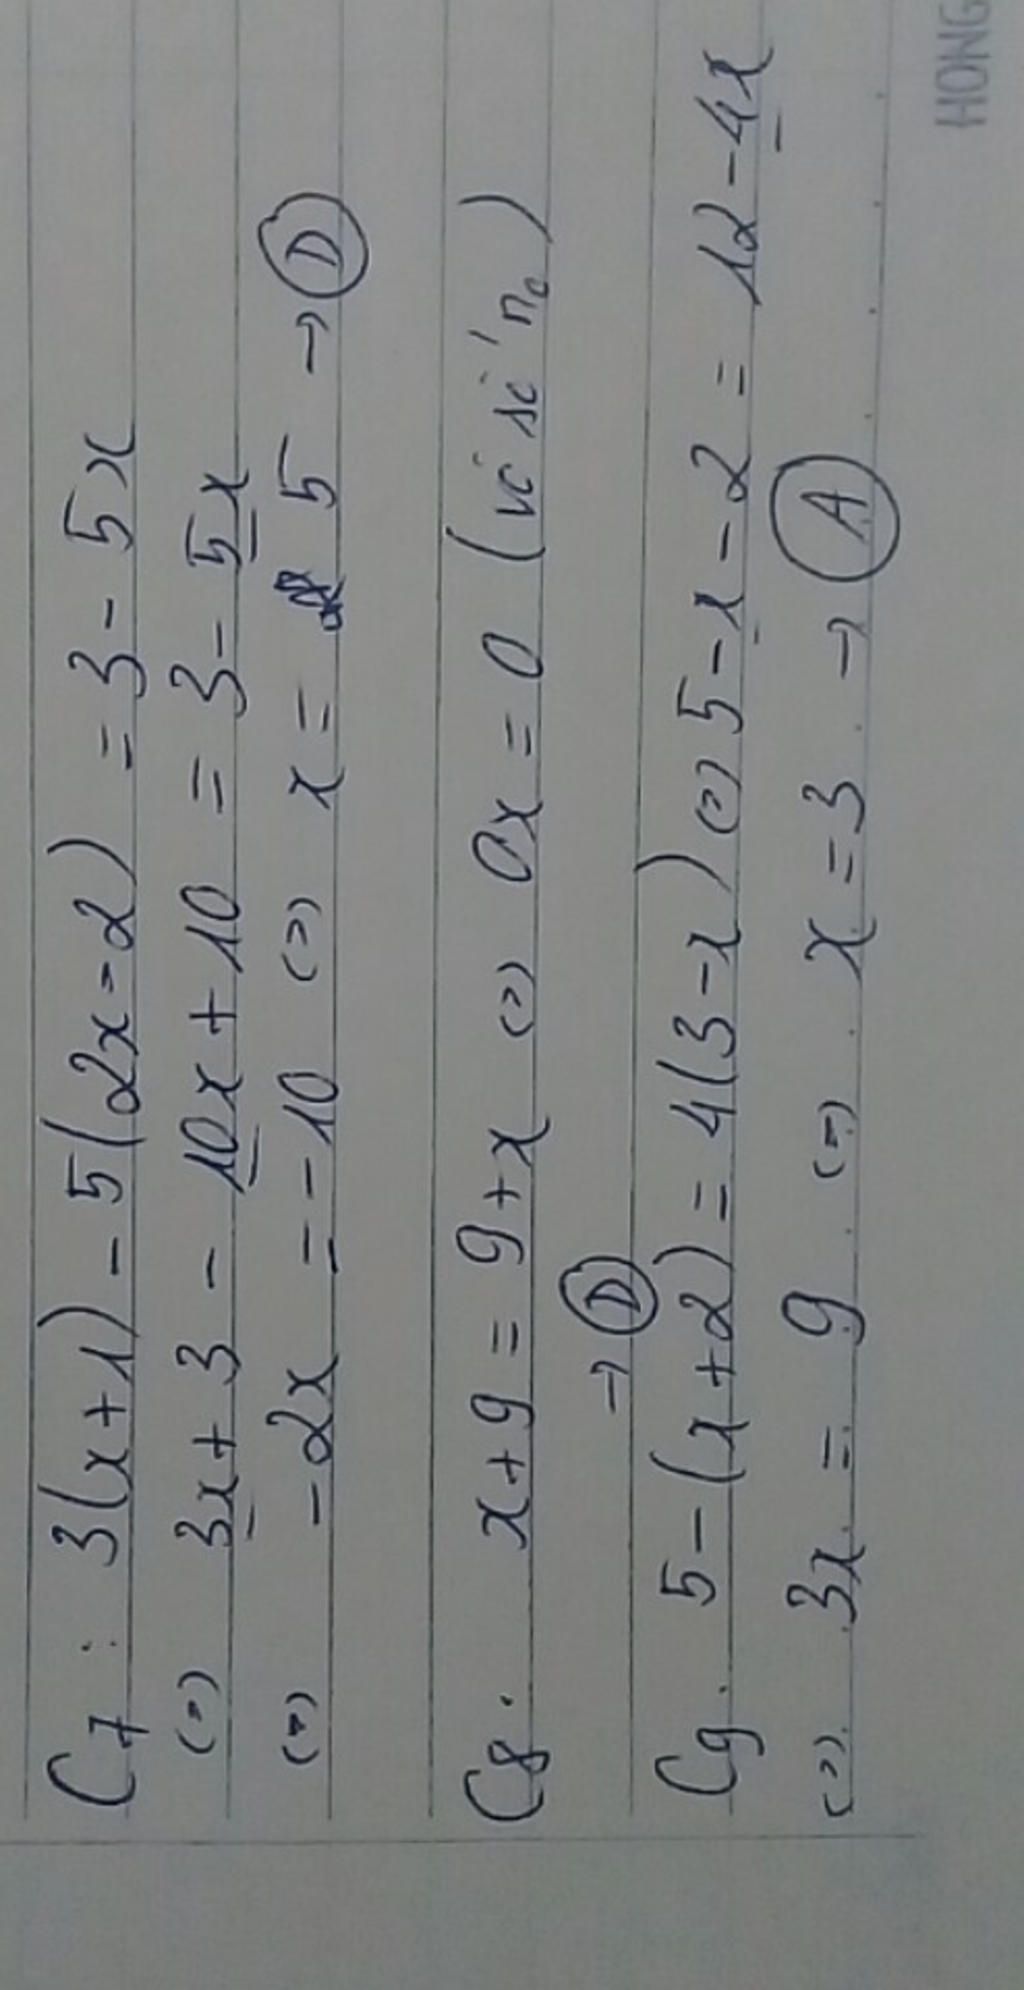 C7: 3(x+1) - 5(2x-2) = 3 - 5x
(=) 3x + 3 - 10x + 10 = 3 - 5x
(=) -2x = -10 (=) x = 5 → D
C8. x+9 = 9+x (=) 0x = 0 (vô số n0)
→ D
C9. 5-(x+2) = 4(3-x) (=) 5-x-2 = 12-4x
(=) 3x = 9 (=) x = 3 → A
HONG